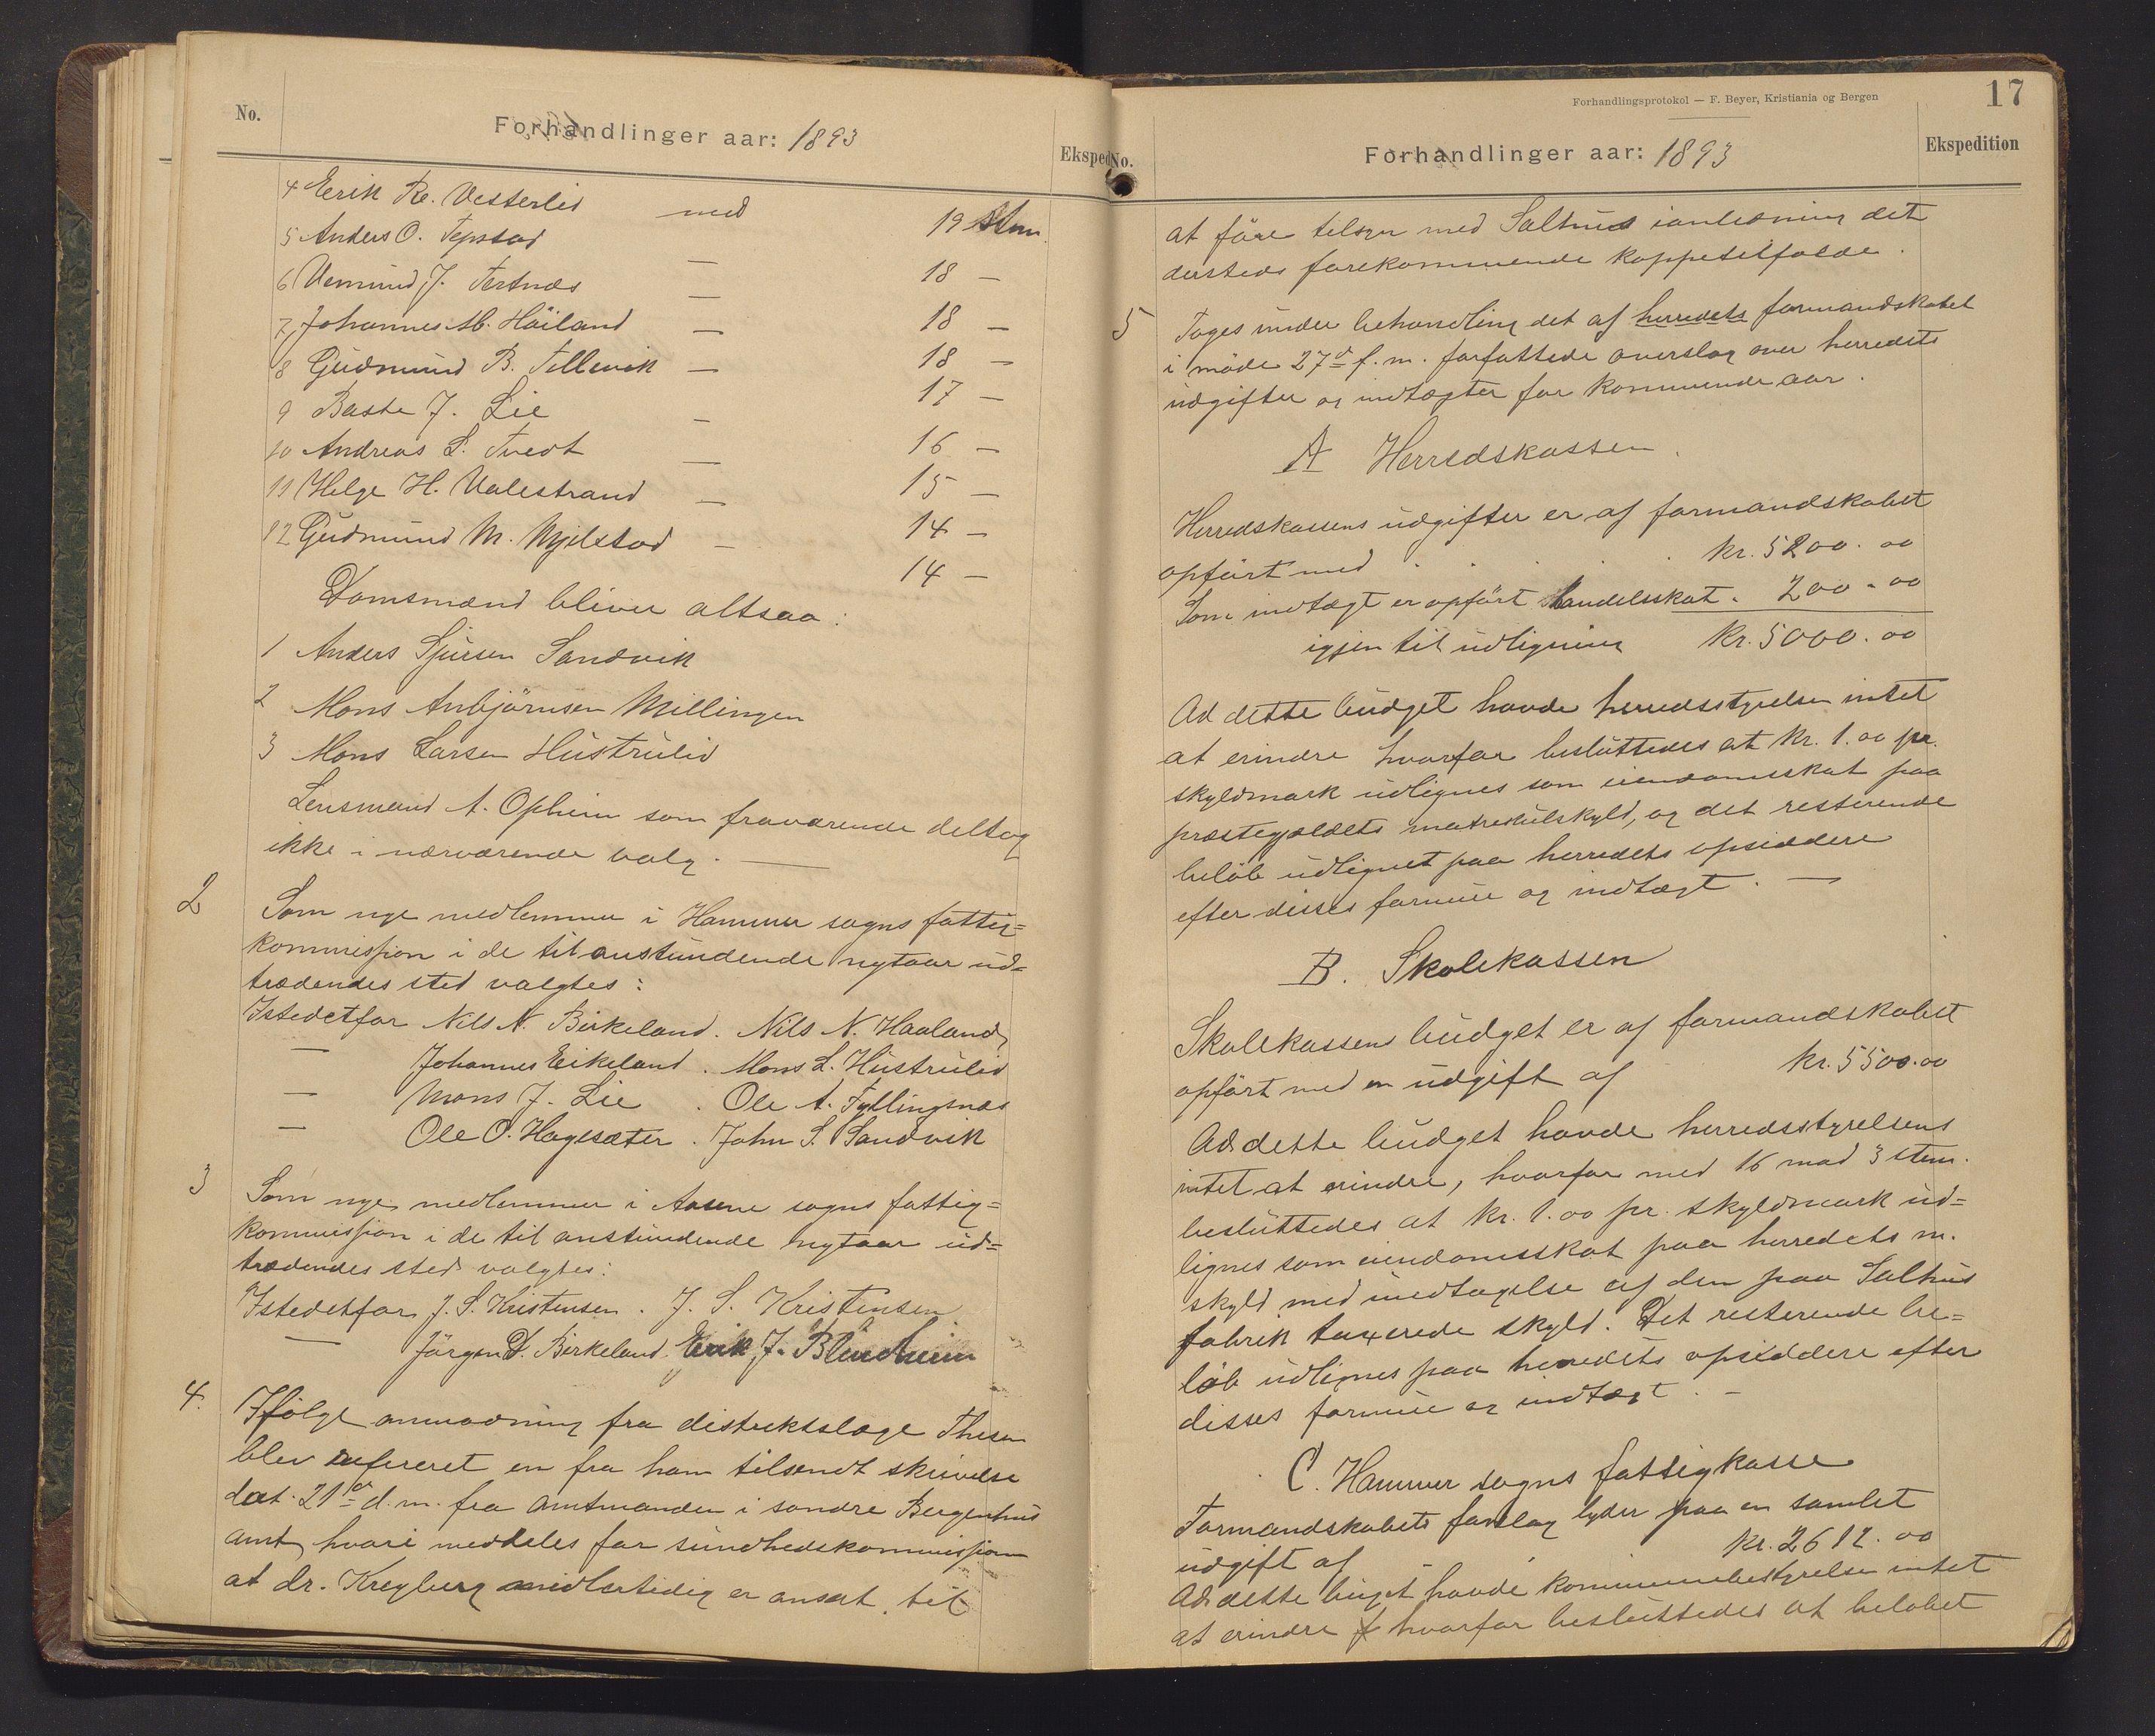 No.
Forhandlinger aar: 1893
Eksped
4 Eerik Re. Vesterlid med 19 stm.
5 Anders O. Tepstad — 18 —
6 Vemund J. Tertnæs — 18 —
7 Johannes M. Höiland — 18 —
8 Gudmund B. Tellevik — 17 —
9 Baste J. Lie — 16 —
10 Andreas L. Tvedt — 15 —
11 Helge H. Valestrand — 14 —
12 Gudmund M. Mjelstad — 14 —
Domsmænd bliver altsaa:
1 Anders Sjursen Sandvik
2 Mons Anbjörnsen Mellingen
3 Mons Larsen Hustrulid
Lensmand A. Opheim som fraværende deltog
ikke i nærværende valg. —
2 Som nye medlemmer i Hammer sogns fattig=
kommission i de til anstundende nytaar ud=
trædendes sted valgtes:
Istedetfor Nils N. Birkeland. Nils N. Haaland,
— Johannes Eikeland. Mons L. Hustrulid
— Mons J. Lie. Ole A. Tyllingsnæs
— Ole O. Hagesæter. John S. Sandvik
3 Som nye medlemmer i Aasene sogns fattig=
kommission i de til anstundende nytaar ud=
trædendes sted valgtes:
Istedetfor J. S. Kristensen. J. S. Kristensen
— Jörgen D. Birkeland. Erik J. Blindheim
4. Ifölge anmodning fra distriktslæge Thesen
blev refereret en fra ham tilsendt skrivelse
dat. 21de d. m. fra amtmanden i söndre Bergenhus
amt, hvori meddeles for sundhedskommissjon
at dr. Kreyberg midlertidig er ansat til
Forhandlingsprotokol — F. Beyer, Kristiania og Bergen
17
No.
Forhandlinger aar: 1893
Ekspedition
at före tilsyn med Salhus ianledning det
dersteds forekommende koppetilfælde.
5 Toges under behandling det af herredets formandskabet
i möde 27de f. m. forfattede overslag over herredets
udgifter og indtægter for kommende aar.
A Herredskassen.
Herredskassens udgifter er af formandskabet
opfört med . . . kr. 5200.00
Som indtægt er opfört handelsskat. 200.00
igjen til udligning kr. 5000.00
Ad dette budget havde herredsstyrelsen intet
at erindre hvorfor besluttedes at kr. 1.00 pr.
skyldmark udlignes som eiendomsskat paa
præstegjældets matrikulskyld, og det resterende
belöb udlignet paa herredets opsiddere
efter disses formue og indtægt. —
B. Skolekassen
Skolekassens budget er af formandskabet
opfört med en udgift af kr. 5500.00
Ad dette budget havde herredsstyrelsens
intet at erindre, hvorfor med 16 mod 3 stem.
besluttedes at kr. 1.00 pr. skyldmark ud=
lignes som eiendomsskat paa herredets m.
skyld med undtagelse af den paa Salhus
fabrik taxerede skyld. Det resterende be=
löb udlignes paa herredets opsiddere efter
disses formue og indtægt. —
C. Hammer sogns fattigkasse
Formandskabets forslag lyder paa en samlet
udgift af kr. 2612.00
Ad dette buget havde kommunebestyrelse intet
at erindre hvorfor besluttedes at belöbet